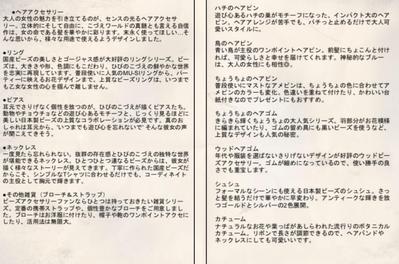 ●ヘアアクセサリー
大人の女性の魅力を引き立てるのが、センスの光るヘアアクセサ
リー。立体的にそして自由に、こづえワールドの真髄とも言える自信
作は、女の命である髪を華やかに彩ります。末永く使ってほしい…そ
んな思いから、様々な用途で使えるようデザインしました。
●リング
国産ビーズの美しさとゴージャス感が大好評のリングシリーズ。ビー
ズは、大きさや形、色調にもこだわり、ひびのこづえの鮮やかな世界
を忠実に再現しています。普段使いに人気のMU-SIリングから、パー
ティーに映えるお花デザインまで、上質なビーズリングは、いつまで
も乙女な女性の心を掴んで離しません。
●ピアス
耳元でさりげなく個性を放つのが、ひびのこづえが描くピアスたち。
動物やチョウチョなどの遊び心あるモチーフと、じっくり見るほどに
美しい日本製ビーズの上質なコラボレーションが必見です。真のおし
ゃれは耳元から、いつまでも遊び心を忘れないで そんな彼女の声
が聞こえてきそう。
●ネックレス
一度見たら忘れられない、抜群の存在感とひびのこづえの独特な世界
が堪能できるネックレス。ひとつひとつ違なビーズからは、彼女が
描く様々なストーリーが見えてきます。丁寧に作られた国産ビーズだ
からこそ、シンプルなTシャツに合わせるだけでも、コーディネイト
の主役として胸元で輝きます。
●その他雑貨（ブローチ&ストラップ）
ビーズアクセサリーファンならひとつは持っておきたい雑貨シリー
ズ。定番の携帯ストラップや、個性豊かなブローチをご用意しまし
た。ブローチはお洋服に付けたり、帽子や鞄のワンポイントアクセに
したり、活用法は無限大。
ハチのヘアピン
遊び心あるハチの巣がモチーフになった、インパクト大のヘアピ
ン。ヘアアレンジが苦手でも、パチっと止めるだけで大人可愛い
スタイルに。
鳥のヘアピン
青い鳥が主役のワンポイントヘアピン。前髪にちょこんと付け
れば、可愛らしさと幸せを届けてくれます。神秘的なブルー
は、大人の女性にも相性◎。
ちょうちょのヘアピン
普段使いにマストなアメピンは、ちょうちょの色に合わせてア
メピンのカラーも変化。色違いを重ねて付けたり、かわいい台
紙付きなのでプレゼントにもおすすめ。
ちょうちょのヘアゴム
きらきら輝くちょうちょの大人気シリーズ。羽部分がお花模様
に編まれていたり、ゴムの留め具にも黒いビーズを使うなど、
上質なデザインも人気の秘密。
ウッドヘアゴム
年代や服装を選ばないさりげないデザインが好評のウッドビー
ズアクセサリー。ゴムが細めになっているので、使い勝手の良
さでも重宝します。
シュシュ
フォーマルなシーンにも使える日本製ビーズのシュシュ。さっ
と髪を結うだけで華やかに早変わり。アンティークな輝きを放
つゴールドとシルバーの2色展開。
カチューム
ナチュラルなお花や葉っぱがあしらわれた流行りのボタニカル
カチューム。リボンで長さが調節できるので、ヘアバンドや
ネックレスにしても可愛いです。